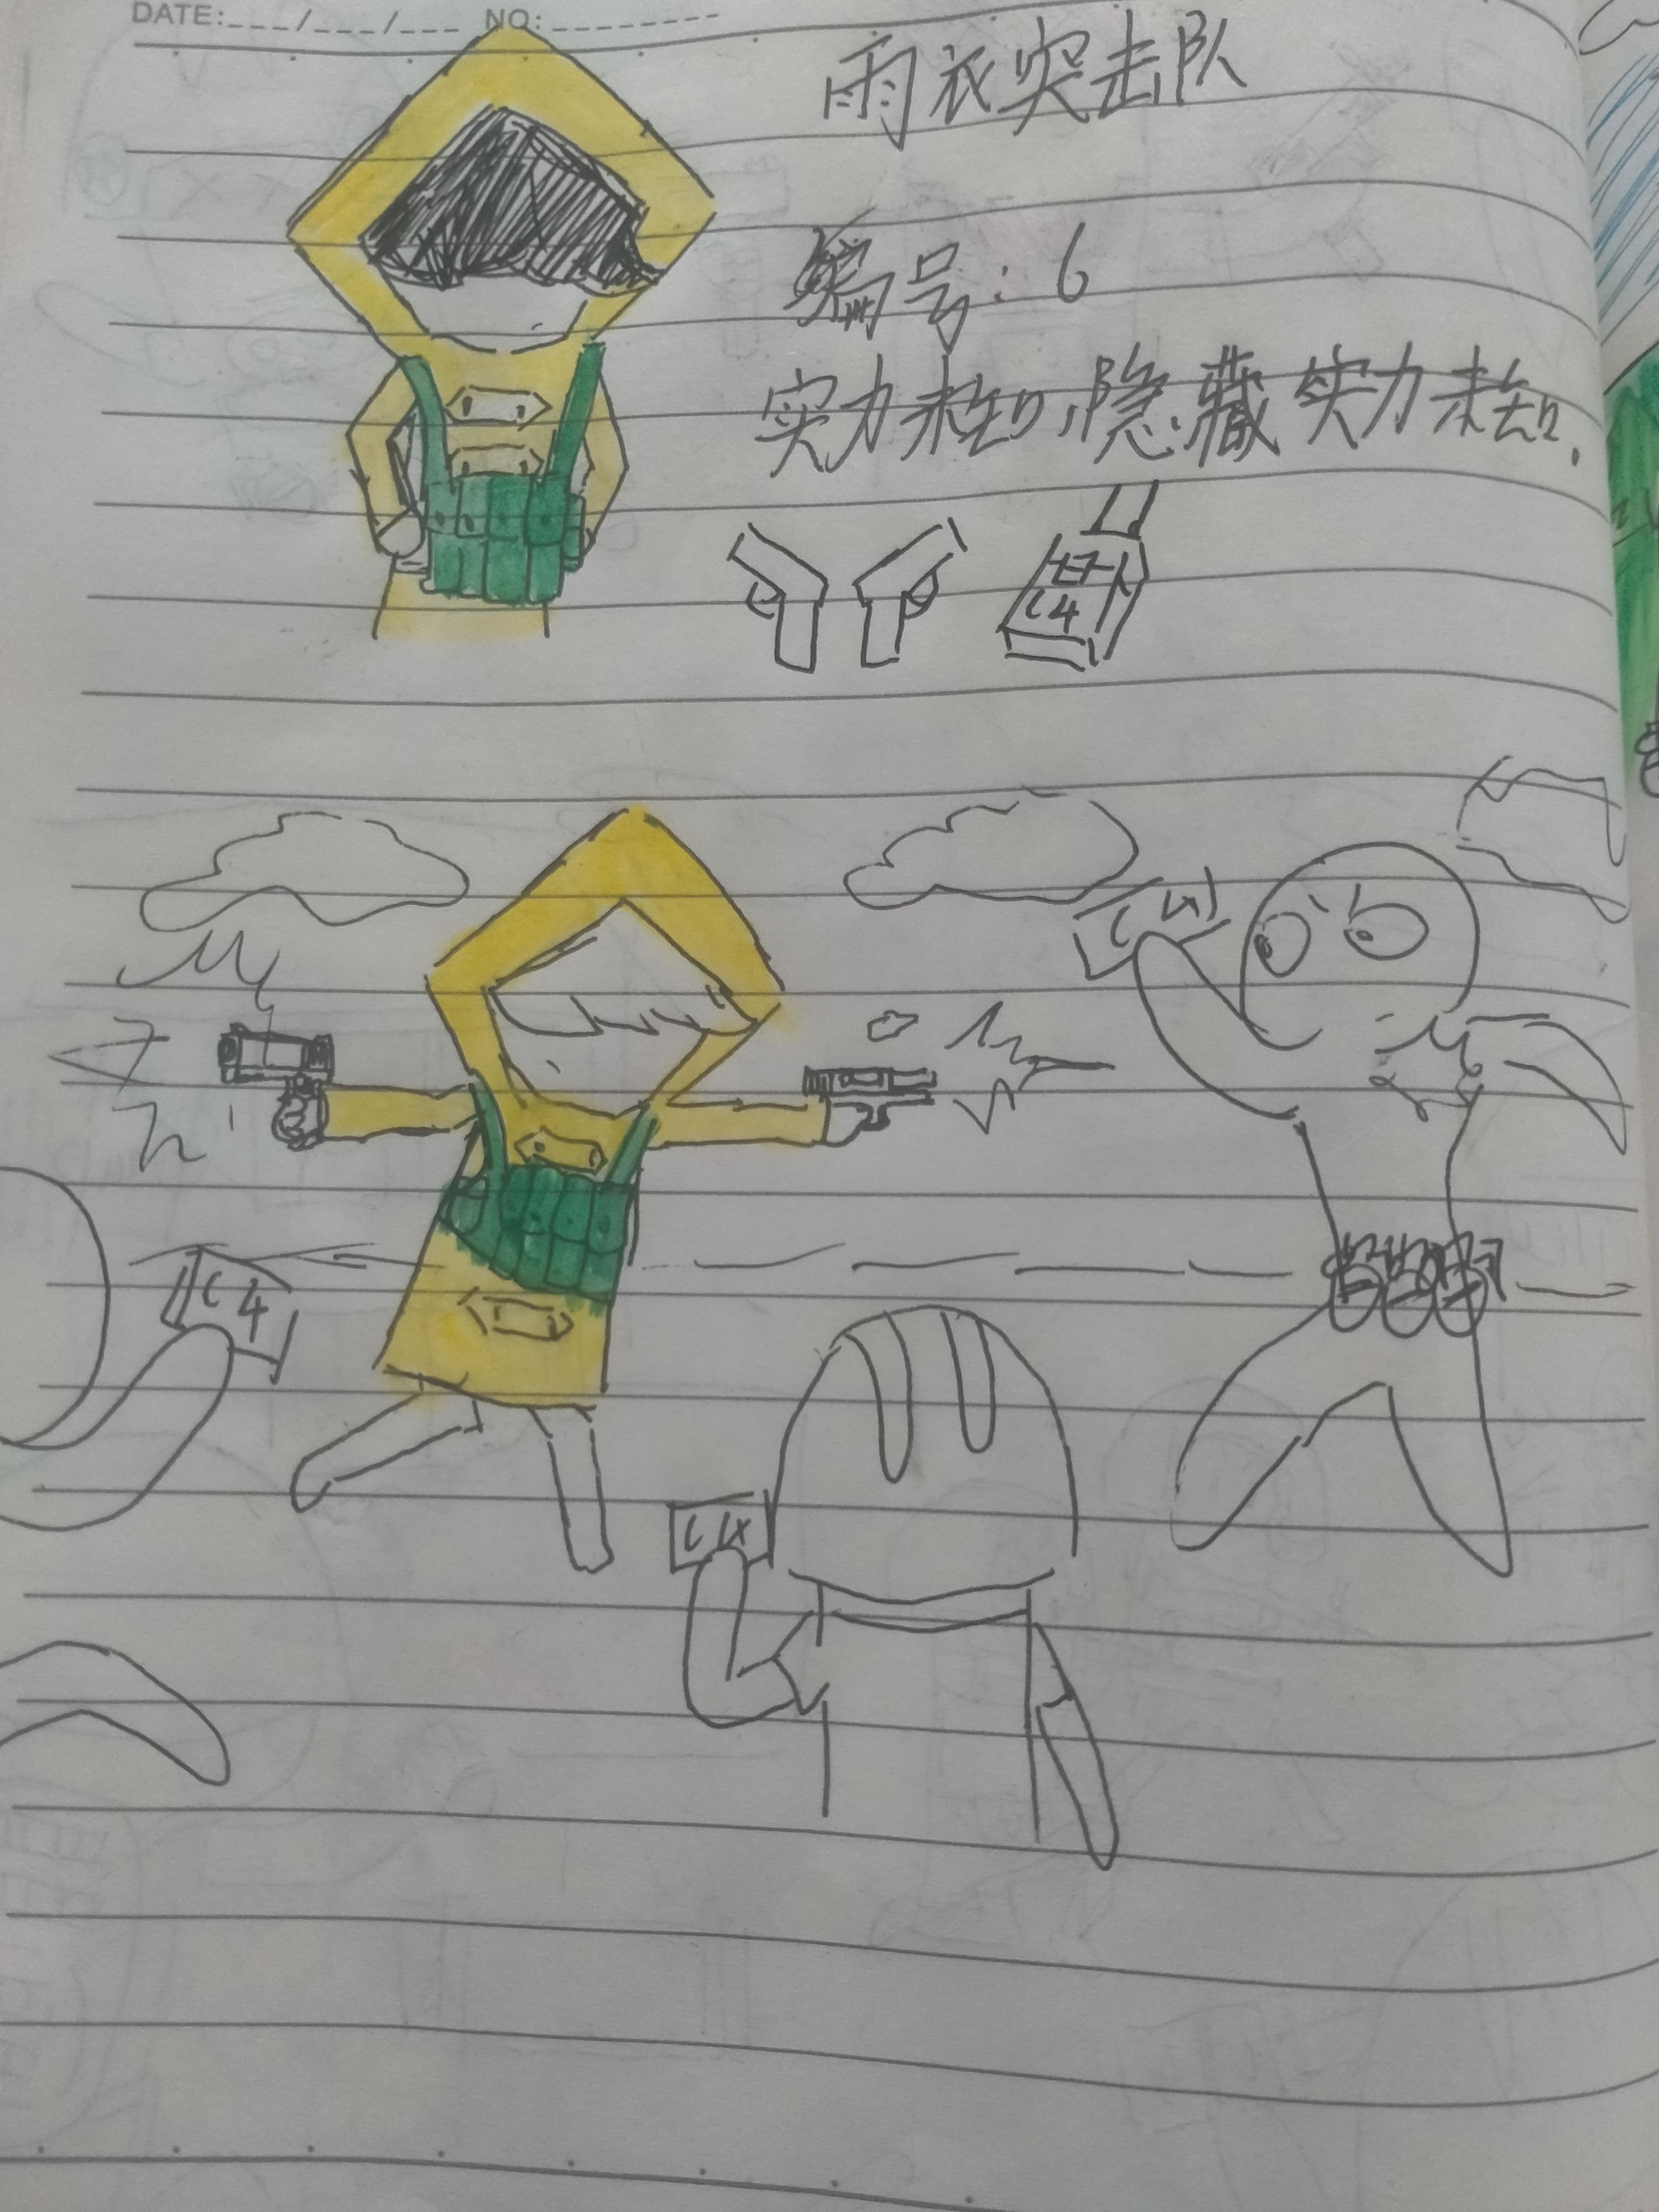 DATE:___/___/___ NO:_________
雨衣突击队
编号:6
实力未知,隐藏实力未知.
C4
C4
C4
C4